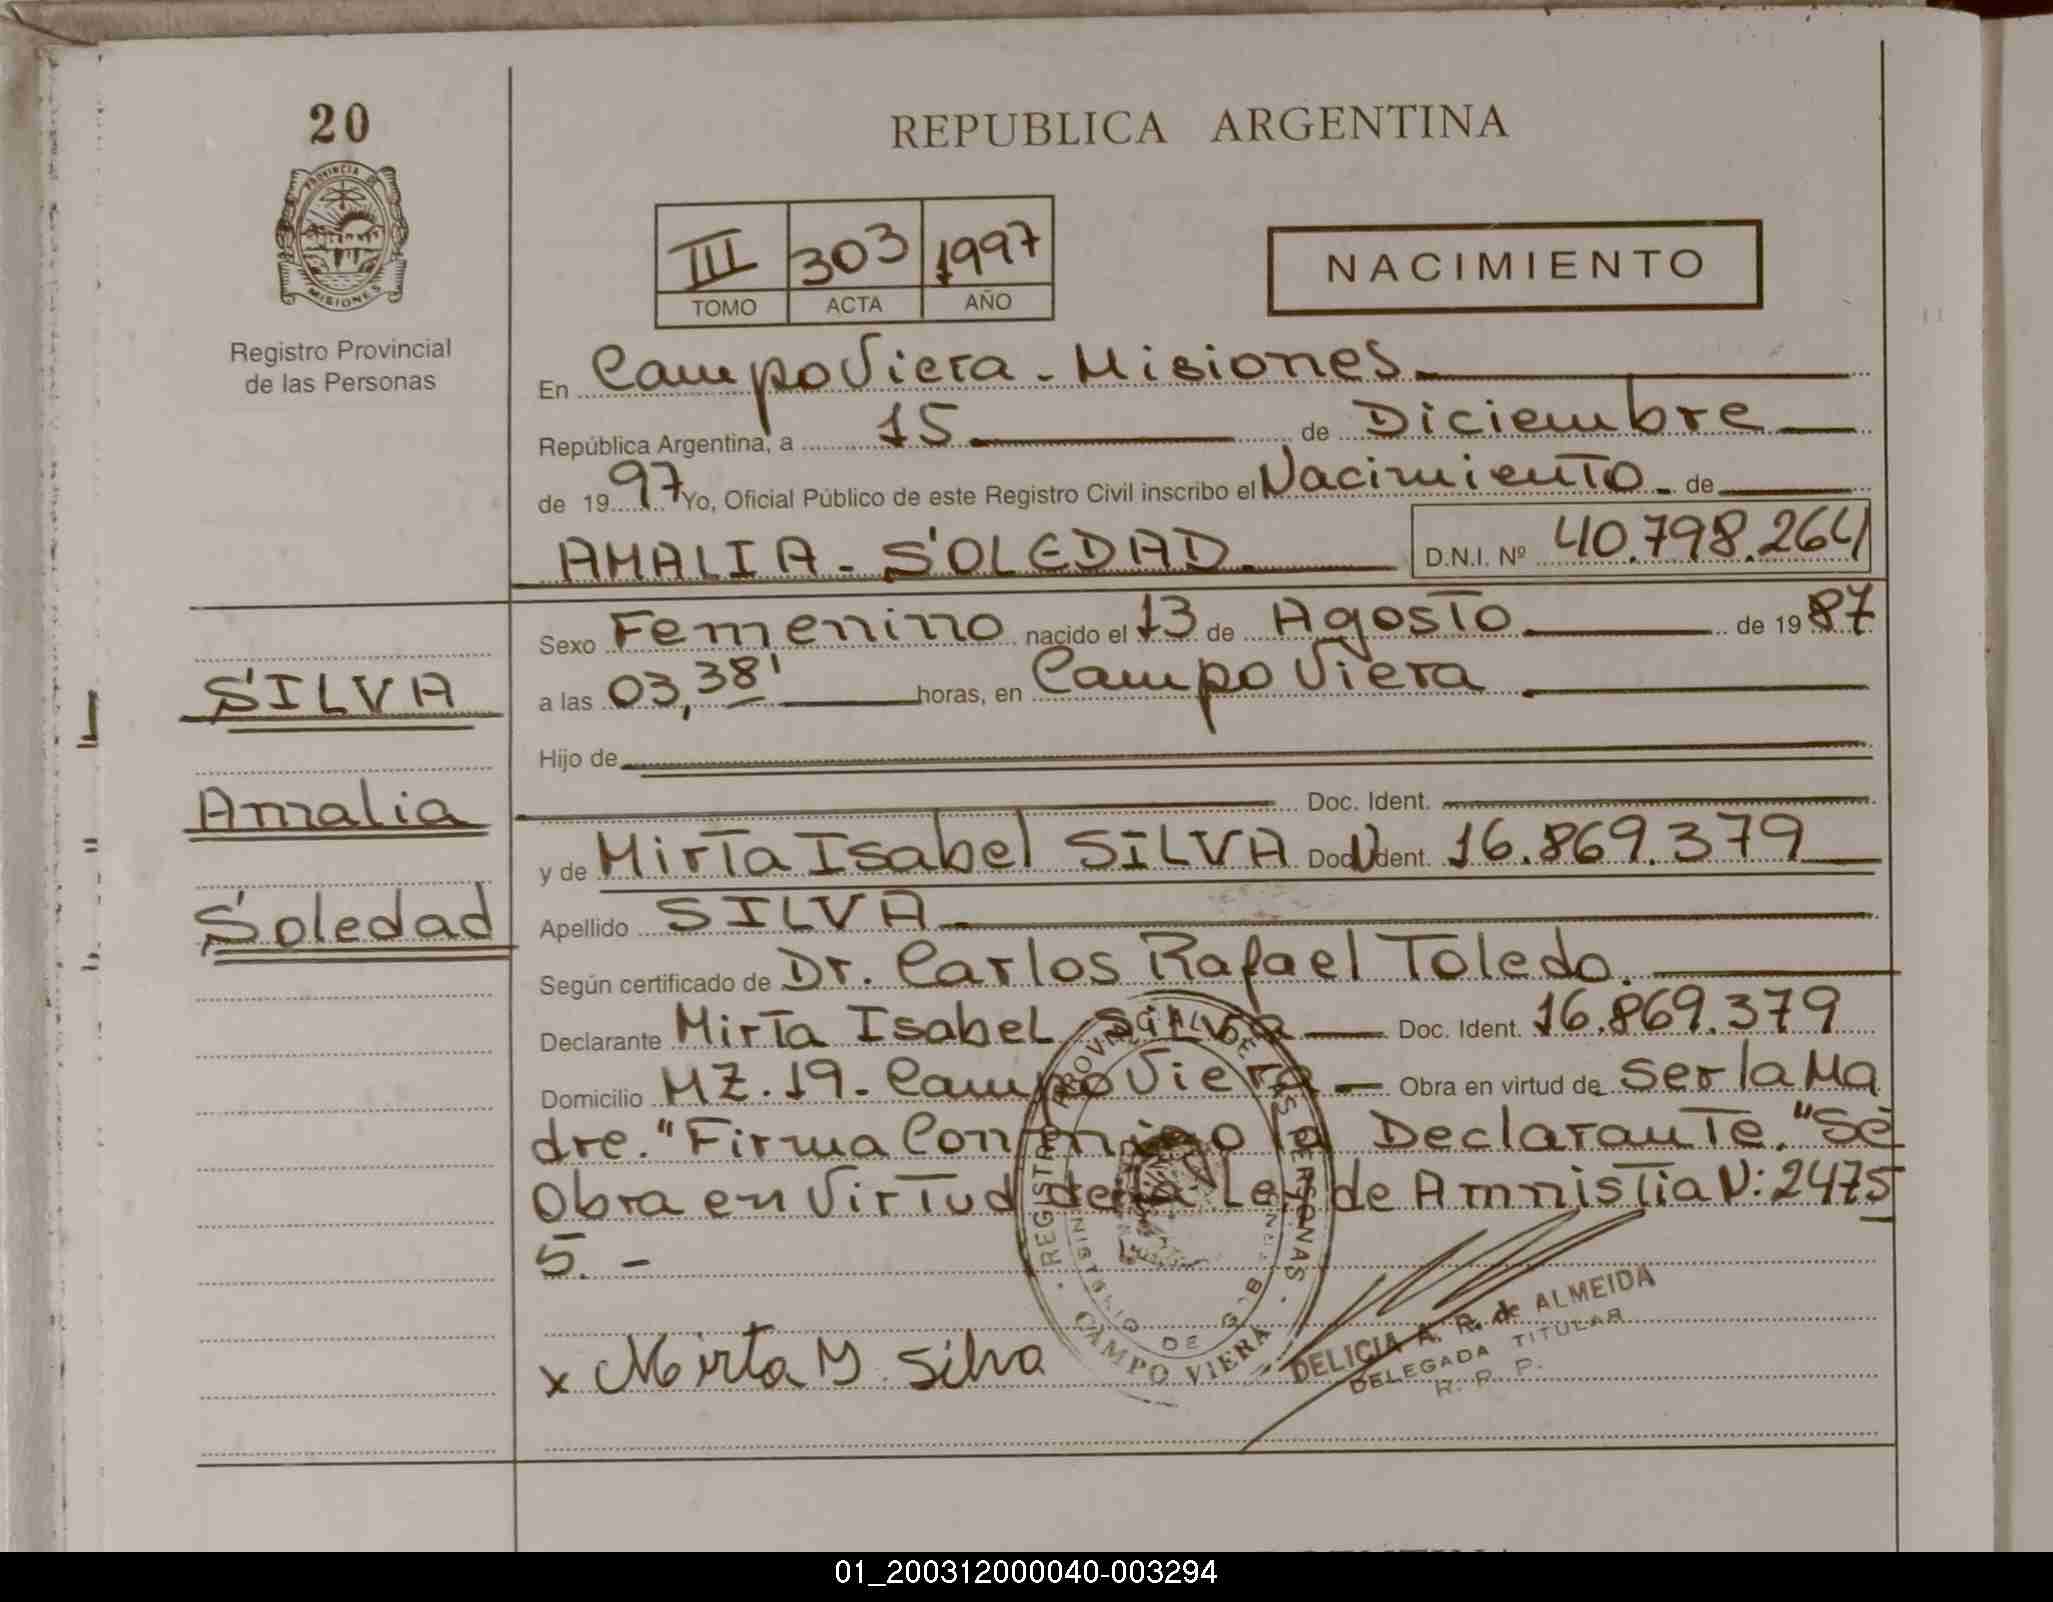 20
PROVINCIA DE
MISIONES
Registro Provincial
de las Personas
REPUBLICA ARGENTINA
III 303 1997
TOMO ACTA AÑO
NACIMIENTO
En Campo Viera - Misiones.
República Argentina, a 15 de Diciembre
de 19 97 Yo, Oficial Público de este Registro Civil inscribo el Nacimiento de
AMALIA - SOLEDAD. D.N.I. Nº 40.798.264
Sexo Femenino nacido el 13 de Agosto de 19 87
a las 03,38' horas, en Campo Viera
Hijo de
Doc. Ident.
y de Mirta Isabel SILVA Doc. Ident. 16.869.379
Apellido SILVA
Según certificado de Dr. Carlos Rafael Toledo.
Declarante Mirta Isabel Silva Doc. Ident. 16.869.379
Domicilio MZ. 19 - Campo Viera - Obra en virtud de ser la Ma
dre. "Firma Conmigo la Declarante." Se
Obra en Virtud de la Ley de Amnistia N: 2475
5. -
x Mirta Y. Silva
SILVA
Amalia
Soledad
REGISTRO PROVINCIAL DE LAS PERSONAS
MINISTERIO DE GOB
CAMPO VIERA
DELICIA A. R. de ALMEIDA
DELEGADA TITULAR
R. P. P.
01_200312000040-003294